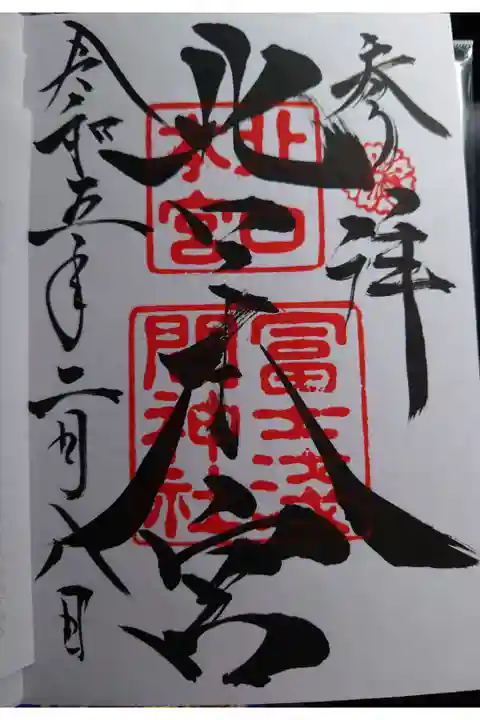 参拝
北口本宮
令和五年二月八日
北口
本宮
冨士浅
間神社